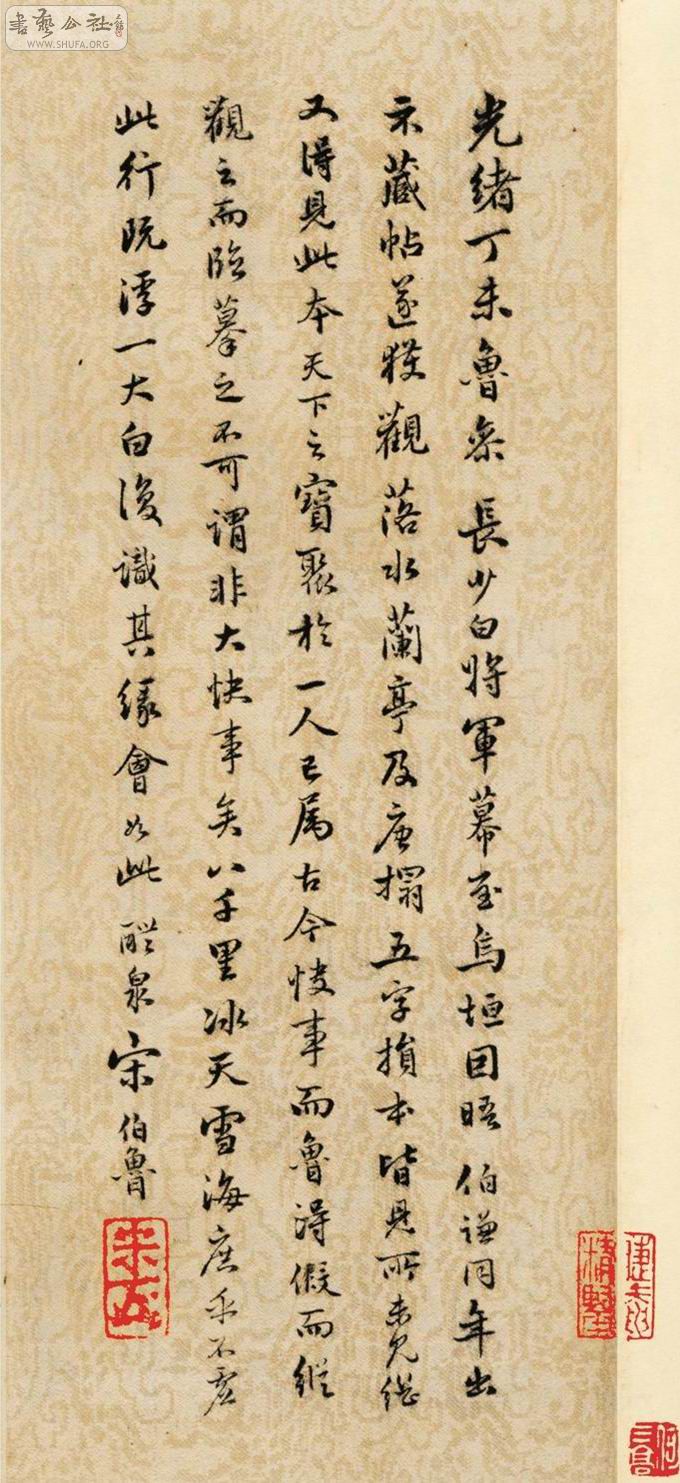 書藝公社
WWW.SHUFA.ORG
光緒丁未魯參長少白將軍幕至烏垣因晤伯謙同年出
示藏帖遂獲觀落水蘭亭及唐搨五字損本皆見所未見繼
又得見此本天下之寶聚於一人已属古今快事而魯得假而縱
觀之而臨摹之不可謂非大快事矣八千里冰天雪海庶乎不虛
此行既浮一大白復識其緣會如此醴泉宋伯魯